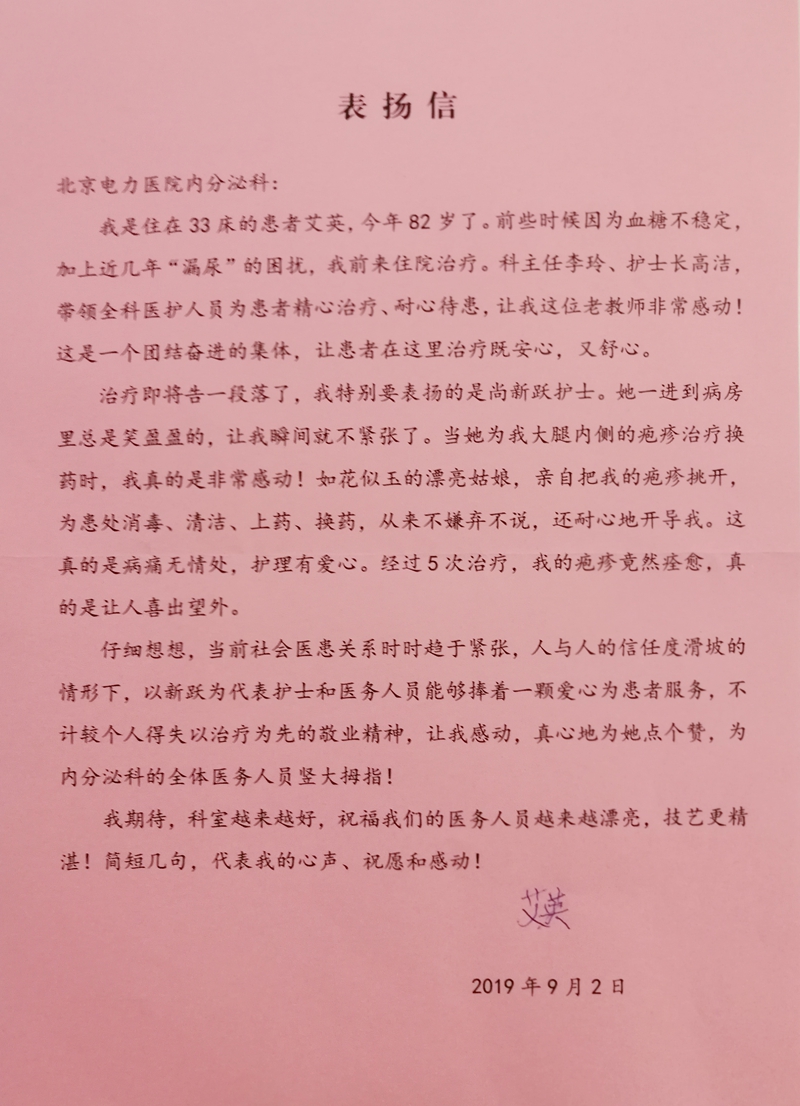 表扬信
北京电力医院内分泌科：
我是住在 33 床的患者艾英，今年 82 岁了。前些时候因为血糖不稳定，
加上近几年“漏尿”的困扰，我前来住院治疗。科主任李玲、护士长高洁，
带领全科医护人员为患者精心治疗、耐心待患，让我这位老教师非常感动！
这是一个团结奋进的集体，让患者在这里治疗既安心，又舒心。
治疗即将告一段落了，我特别要表扬的是尚新跃护士。她一进到病房
里总是笑盈盈的，让我瞬间就不紧张了。当她为我大腿内侧的疱疹治疗换
药时，我真的是非常感动！如花似玉的漂亮姑娘，亲自把我的疱疹挑开，
为患处消毒、清洁、上药、换药，从来不嫌弃不说，还耐心地开导我。这
真的是病痛无情处，护理有爱心。经过 5 次治疗，我的疱疹竟然痊愈，真
的是让人喜出望外。
仔细想想，当前社会医患关系时时趋于紧张，人与人的信任度滑坡的
情形下，以新跃为代表护士和医务人员能够捧着一颗爱心为患者服务，不
计较个人得失以治疗为先的敬业精神，让我感动，真心地为她点个赞，为
内分泌科的全体医务人员竖大拇指！
我期待，科室越来越好，祝福我们的医务人员越来越漂亮，技艺更精
湛！简短几句，代表我的心声、祝愿和感动！
艾英
2019 年 9 月 2 日